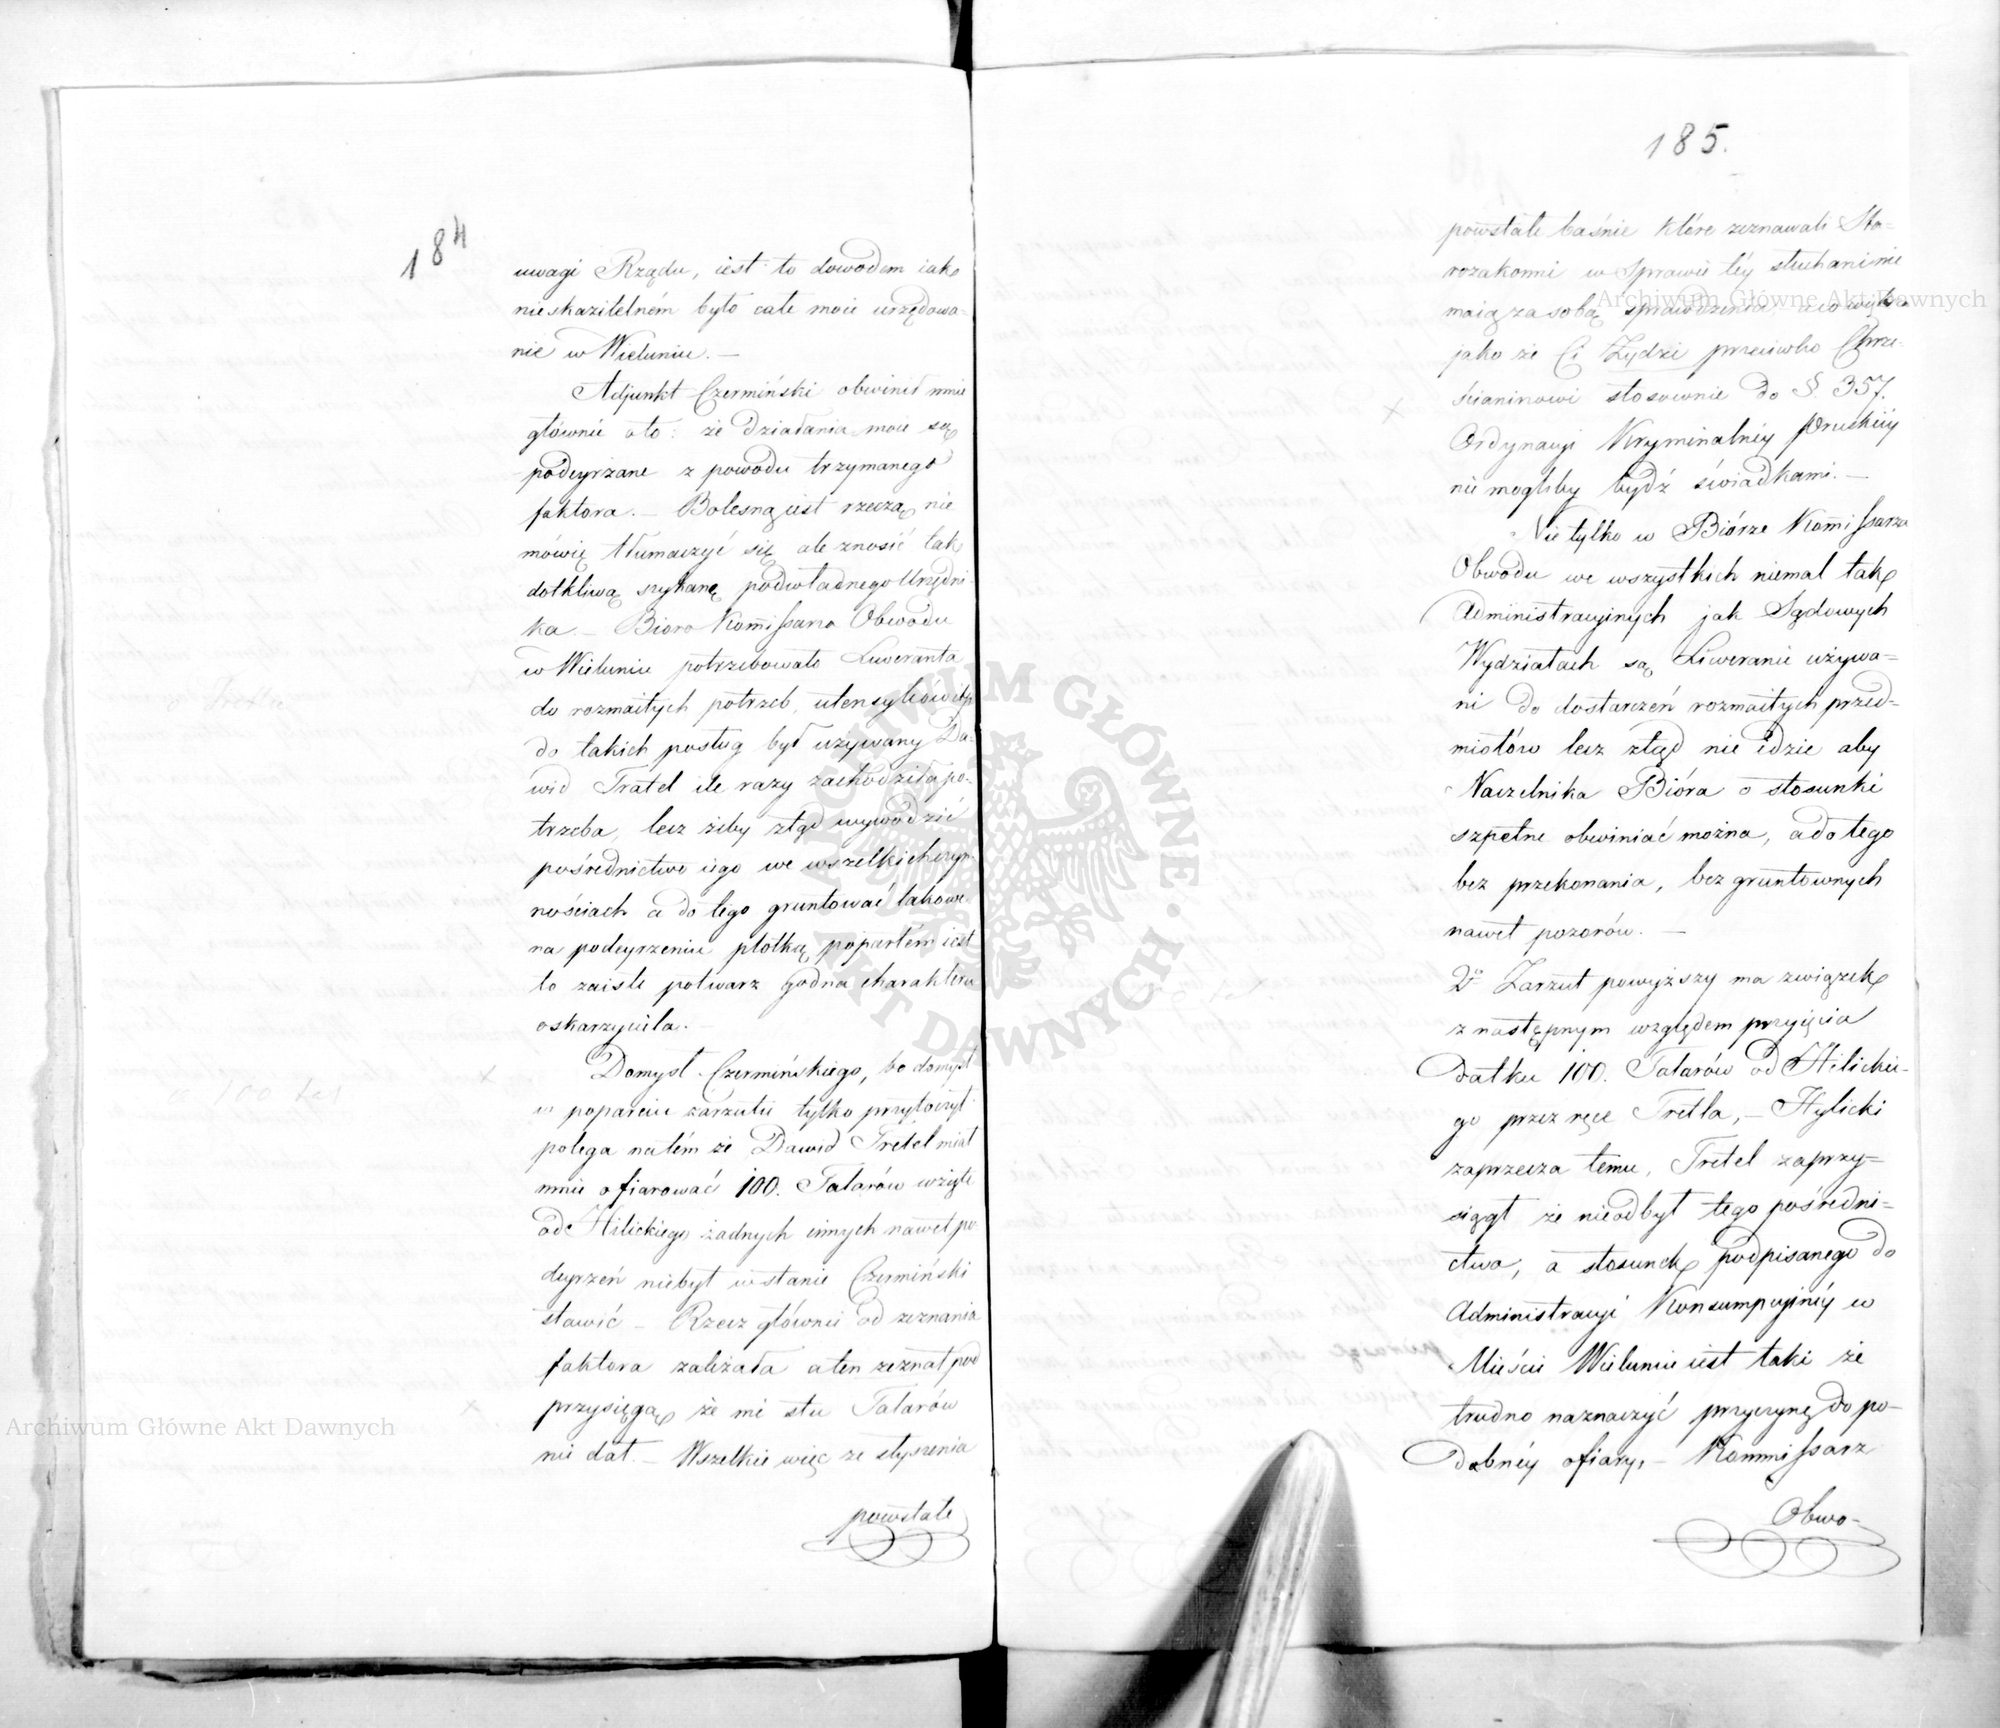 184
uwagi Rządu, iest to dowodem iako
nieskazitelném było całe moie urzędowa-
nie w Wieluniu. —
Adjunkt Czermiński obwinił mnie
głównie oto: że działania moie są
podeyrzane z powodu trzymanego
faktora. — Bolesną iest rzeczą nie
mówię tłumaczyć się ale znosić tak
dotkliwą szykanę podwładnego Urzędni-
ka. — Bioro Kommissarza Obwodu
w Wieluniu potrzebowało Liweranta
do rozmaitych potrzeb, utensyliow itp
do takich posług był używany Da-
wid Tratel ile razy zachodziła po-
trzeba, lecz żeby ztąd wywodzić
pośrednictwo iego we wszelkich czyn-
nościach a do tego gruntować takowe
na podeyrzeniu plotką popartém iest
to zaiste potwarz godna charakteru
oskarzyciela. —
Domysł Czermińskiego, bo domysł
w poparciu zarzutu tylko przytoczył
polega na tém że Dawid Tretel miał
mnie ofiarować 100. Talarów wzięte
od Hilickiego żadnych innych nawet po-
deyrzeń niebył wstanie Czermiński
stawić — Rzecz głównie od zeznania
faktora zależała a ten zeznał pod
przysięgą że mi stu Talarów
nie dał. — Wszelkie więc ze słyszenia
powstałe
185.
powstałe baśnie które zeznawali Sta-
rozakonni w Sprawie téy słuchani nie
maią za sobą sprawdzenia, a to więkсz
jako że Ci Żydzi przeciwko Chrze-
ścianinowi stosownie do §. 357.
Ordynacyi Kryminalnéy Pruskiéy
nie mogliby bydź świadkami. —
Nie tylko w Biórze Kommissarza
Obwodu we wszystkich niemal tak
Administracyinych jak Sądowych
Wydziałach są Liweranie używa-
ni do dostarczeń rozmaitych przed-
miotów lecz ztąd nie idzie aby
Naczelnika Bióra o stosunki
szpetne obwiniać można, a do tego
bez przekonania, bez gruntownych
nawet pozorów. —
2º Zarzut powyższy ma związek
z następnym względem przyięcia
datku 100. Talarów od Hilickie-
go przez ręce Tretla, — Hylicki
zaprzecza temu, Tretel zaprzy-
siągł że nieodbył tego pośredni-
ctwa, a stosunek podpisanego do
Administracyi Konsumpcyinéy w
Mieście Wieluniu iest taki że
trudno naznaczyć przyczynę do po-
dobnéy ofiary, — Kommissarz
Obwo-
Archiwum Główne Akt Dawnych
Archiwum Główne Akt Dawnych
ARCHIWUM GŁÓWNE AKT DAWNYCH